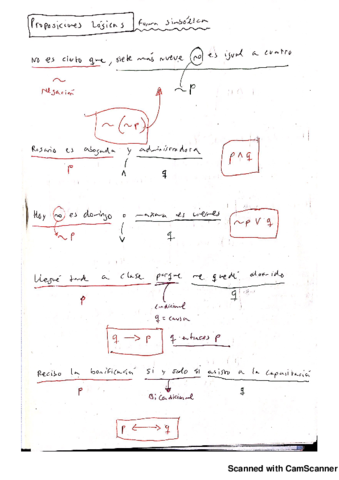 Proposiciones Lógicas / forma simbólica
No es cierto que, siete más nueve no es igual a cuatro
~ ~p
negación
~(~p)
Rosario es abogada y administradora p∧q
p ∧ q
Hoy no es domingo o mañana es viernes ~p ∨ q
~p ∨ q
Llegué tarde a clase porque me quedé dormido
p q
condicional
q = causa
q → p q entonces p
Recibo la bonificación si y solo si asisto a la capacitación
p Bicondicional q
p ↔ q
Scanned with CamScanner